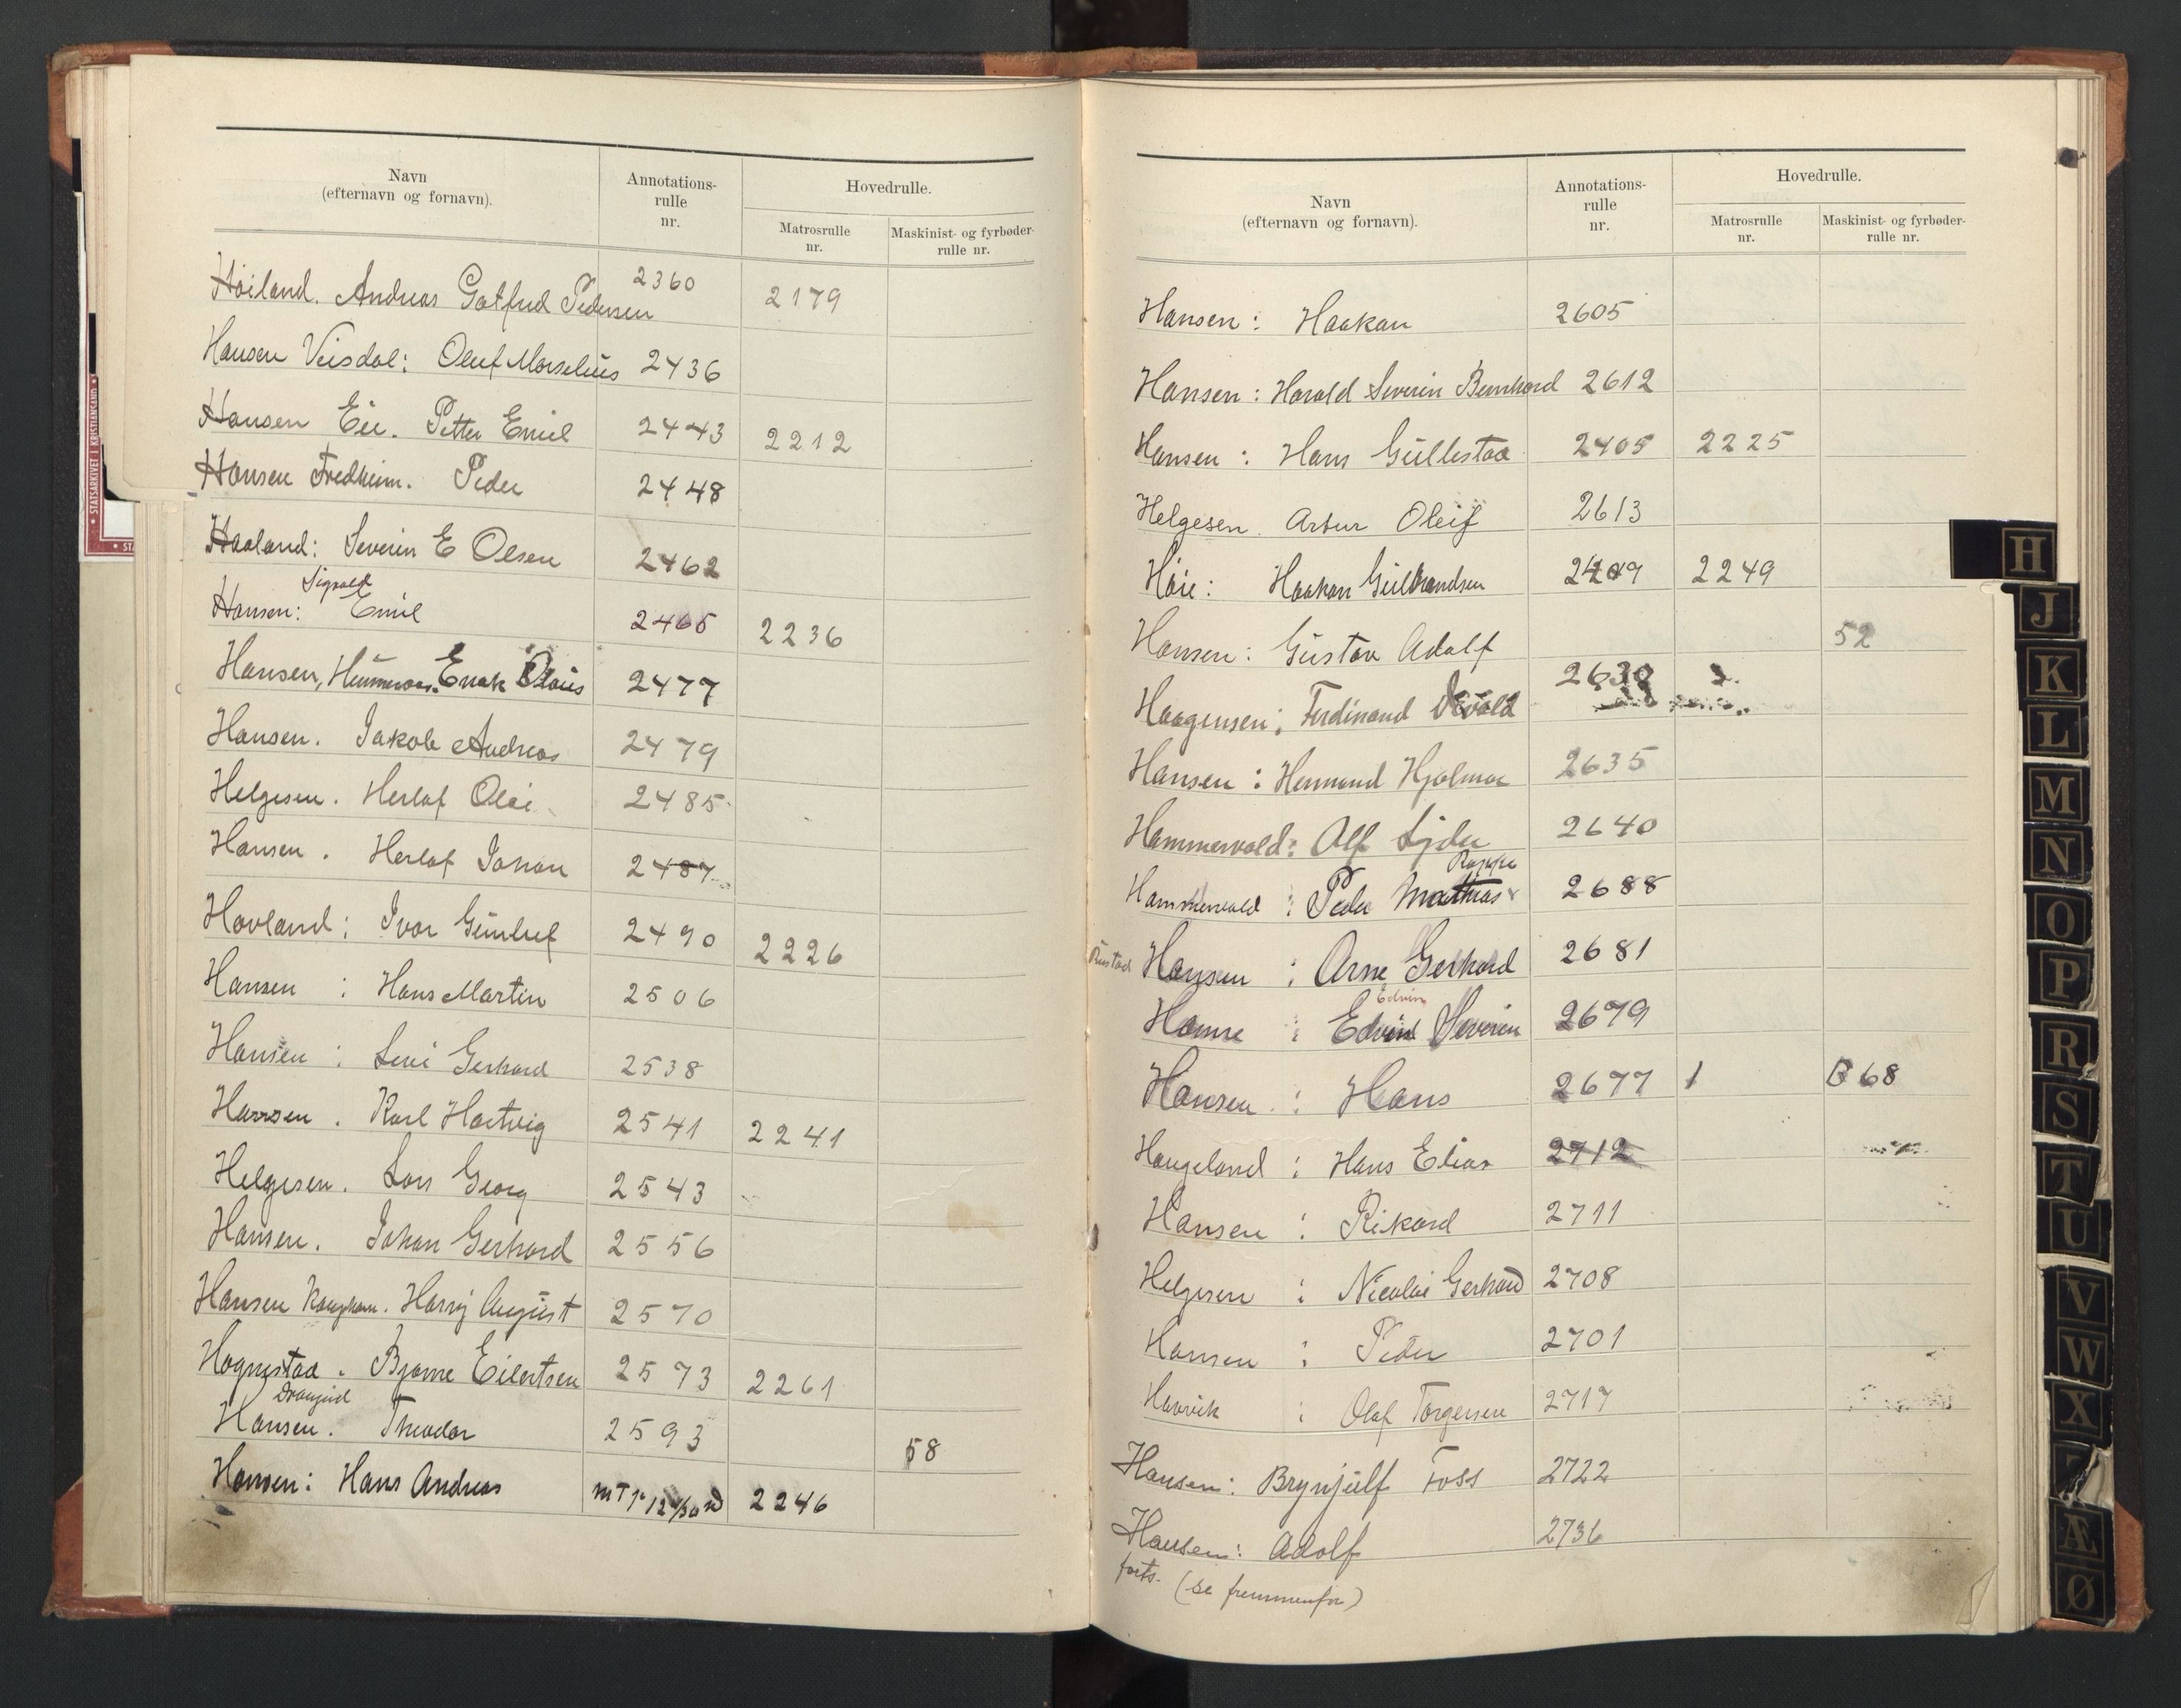 Navn (efternavn og fornavn). Annotations-rulle nr. Hovedrulle. Matrosrulle nr. Maskinist- og fyrbøder-rulle nr.
Høiland. Andreas Gotfred Pedersen 2360 2179
Hansen Veisdal: Oluf Marselius 2436
Hansen Eie. Petter Emil 2443 2212
Hansen Fredheim. Peder 2448
Haaland: Severin E Olsen 2462
Sigvald
Hansen: Emil 2465 2236
Hansen, Enok Olaus 2477
Hansen. Jakob Andreas 2479
Helgesen. Herlof Olai 2485
Hansen. Herlof Johan 2487
Hovland: Ivar Gunluf 2490 2226
Hansen : Hans Martin 2506
Hansen : Levi Gerhard 2538
Hansen. Karl Hartvig 2541 2241
Helgesen. Lars Georg 2543
Hansen. Johan Gerhard 2556
Hansen. Harry August 2570
Hognestad. Bjarne Eilertsen 2573 2261
Drangeid
Hansen. Theodor 2593 58
Hansen: Hans Andreas 2246
Navn (efternavn og fornavn). Annotations-rulle nr. Hovedrulle. Matrosrulle nr. Maskinist- og fyrbøder-rulle nr.
Hansen: Haakon 2605
Hansen: Harald Severin Bernhard 2612
Hansen: Hans Gullestad 2405 2225
Helgesen. Artur Oleif 2613
Høie: Haakon Gulbrandsen 2249
Hansen: Gustav Adolf 52
Haagensen: Ferdinand 2630
Hansen: Hermand Hjalmar 2635
Hammervold: Alf Lyder 2640
Rappe
Hammervold : Peder Mathias 2688
Rustad Hansen : Arne Gerhard 2681
Edvin
Hamre : Edvin Severin 2679
Hansen : Hans 2677 1 B 68
Haugeland : Hans Elias 2712
Hansen : Rikard 2711
Helgesen : Nicolai Gerhard 2708
Hansen : Peder 2701
Haavik : Olaf Torgersen 2717
Hansen: Brynjulf Foss 2722
Hansen: Adolf 2736
forts. (se fremmenfor)
H
J
K
L
M
N
O
P
R
S
T
U
V
W
X
Æ
Ø
• STATSARKIVET I KRISTIANSAND •